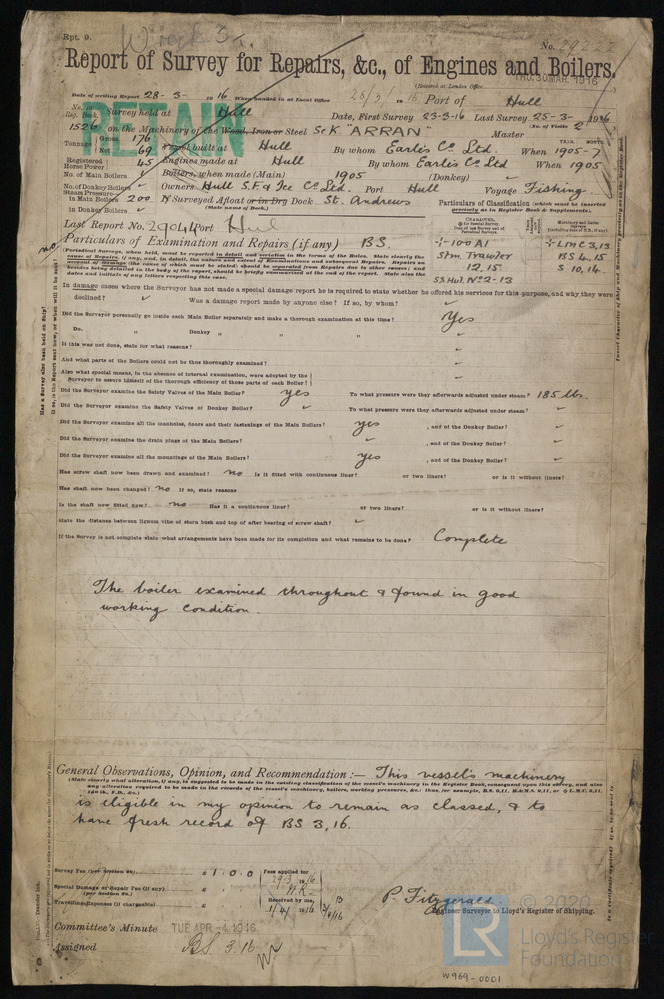 Rpt. 9.
Wreck
No. 29222
Report of Survey for Repairs, &c., of Engines and Boilers.
(Received at London Office THU. 30 MAR. 1916
Date of writing Report 28-3- 1916 When handed in at Local Office 28/3/1916 Port of Hull
RETAIN
No. in Reg. Book. Survey held at Hull Date, First Survey 23-3-16 Last Survey 25-3-1916
(No. of Visits 2)
1526 on the Machinery of the Wood, Iron or Steel Sc K "ARRAN" Master
Tonnage Gross 176 Net 69 Vessel built at Hull By whom Earle's Co. Ltd. When 1905-7
YEAR. MONTH.
Registered Horse Power 45 Engines made at Hull By whom Earle's Co. Ltd When 1905
No. of Main Boilers Boilers, when made (Main) 1905 (Donkey)
No. of Donkey Boilers Owners Hull S.F. & Ice Co. Ltd. Port Hull Voyage Fishing
Steam Pressure in Main Boilers 200 If Surveyed Afloat or in Dry Dock St. Andrews
(State name of Dock.)
in Donkey Boilers
Particulars of Classification (which must be inserted precisely as in Register Book & Supplements).
Last Report No. 29044 Port Hul
Particulars of Examination and Repairs (if any) BS.
CHARACTER.
+100A1
Stm Trawler
12.15
SS Hul. No2-13
+LMC 3,13
BS 4.15
S 10.14
In damage cases where the Surveyor has not made a special damage report he is required to state whether he offered his services for this purpose, and why they were
declined? Was a damage report made by anyone else? If so, by whom?
Did the Surveyor personally go inside each Main Boiler separately and make a thorough examination at this time? Yes
Do. " Donkey " " "
If this was not done, state for what reasons?
And what parts of the Boilers could not be thus thoroughly examined?
Also what special means, in the absence of internal examination, were adopted by the Surveyor to assure himself of the thorough efficiency of those parts of each Boiler?
Did the Surveyor examine the Safety Valves of the Main Boiler? yes To what pressure were they afterwards adjusted under steam? 185 lbs.
Did the Surveyor examine the Safety Valves of Donkey Boiler? To what pressure were they afterwards adjusted under steam?
Did the Surveyor examine all the manholes, doors and their fastenings of the Main Boilers? yes , and of the Donkey Boiler?
Did the Surveyor examine the drain plugs of the Main Boilers? , and of the Donkey Boiler?
Did the Surveyor examine all the mountings of the Main Boilers? yes , and of the Donkey Boiler?
Has screw shaft now been drawn and examined? no Is it fitted with continuous liner? or two liners? or is it without liners?
Has shaft now been changed? no If so, state reasons
Is the shaft now fitted new? no Has it a continuous liner? or two liners? or is it without liners?
State the distance between lignum vitæ of stern bush and top of after bearing of screw shaft?
If the Survey is not complete state what arrangements have been made for its completion and what remains to be done? Complete
The boiler examined throughout & found in good
working condition.
General Observations, Opinion, and Recommendation:— This vessel's machinery
(State clearly what alteration, if any, is suggested to be made in the existing classification of the vessel's machinery in the Register Book, consequent upon this survey, and also
is eligible in my opinion to remain as classed, & to
have fresh record of BS 3,16.
Survey Fee (per Section 28) £ 1 : 0 : 0
Fees applied for 29.3.1916
Special Damage or Repair Fee (if any) (per Section 28.) £
Travelling Expenses (if chargeable) £
Received by me, 1/4/1916
P. Fitzgerald
Engineer Surveyor to Lloyd's Register of Shipping.
Committee's Minute TUE. APR -4 1916
Assigned BS 3.16
© 2020
LR
Lloyd's Register
Foundation
W969-0001